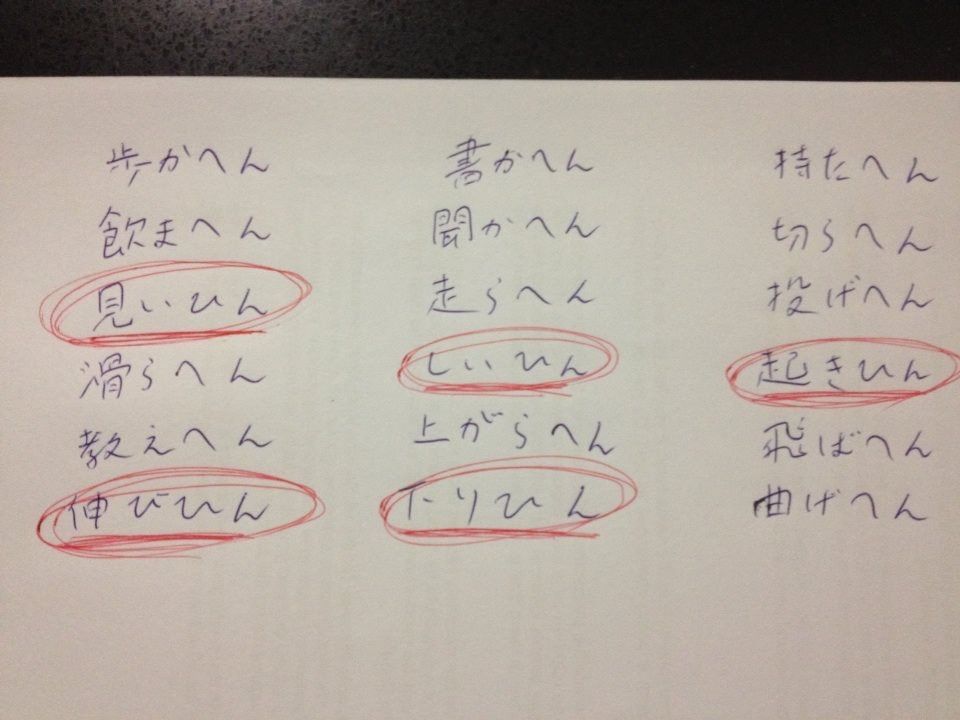 歩かへん 書かへん 持たへん
飲まへん 聞かへん 切らへん
見いひん 走らへん 投げへん
滑らへん しいひん 起きひん
教えへん 上がらへん 飛ばへん
伸びひん 下りひん 曲げへん